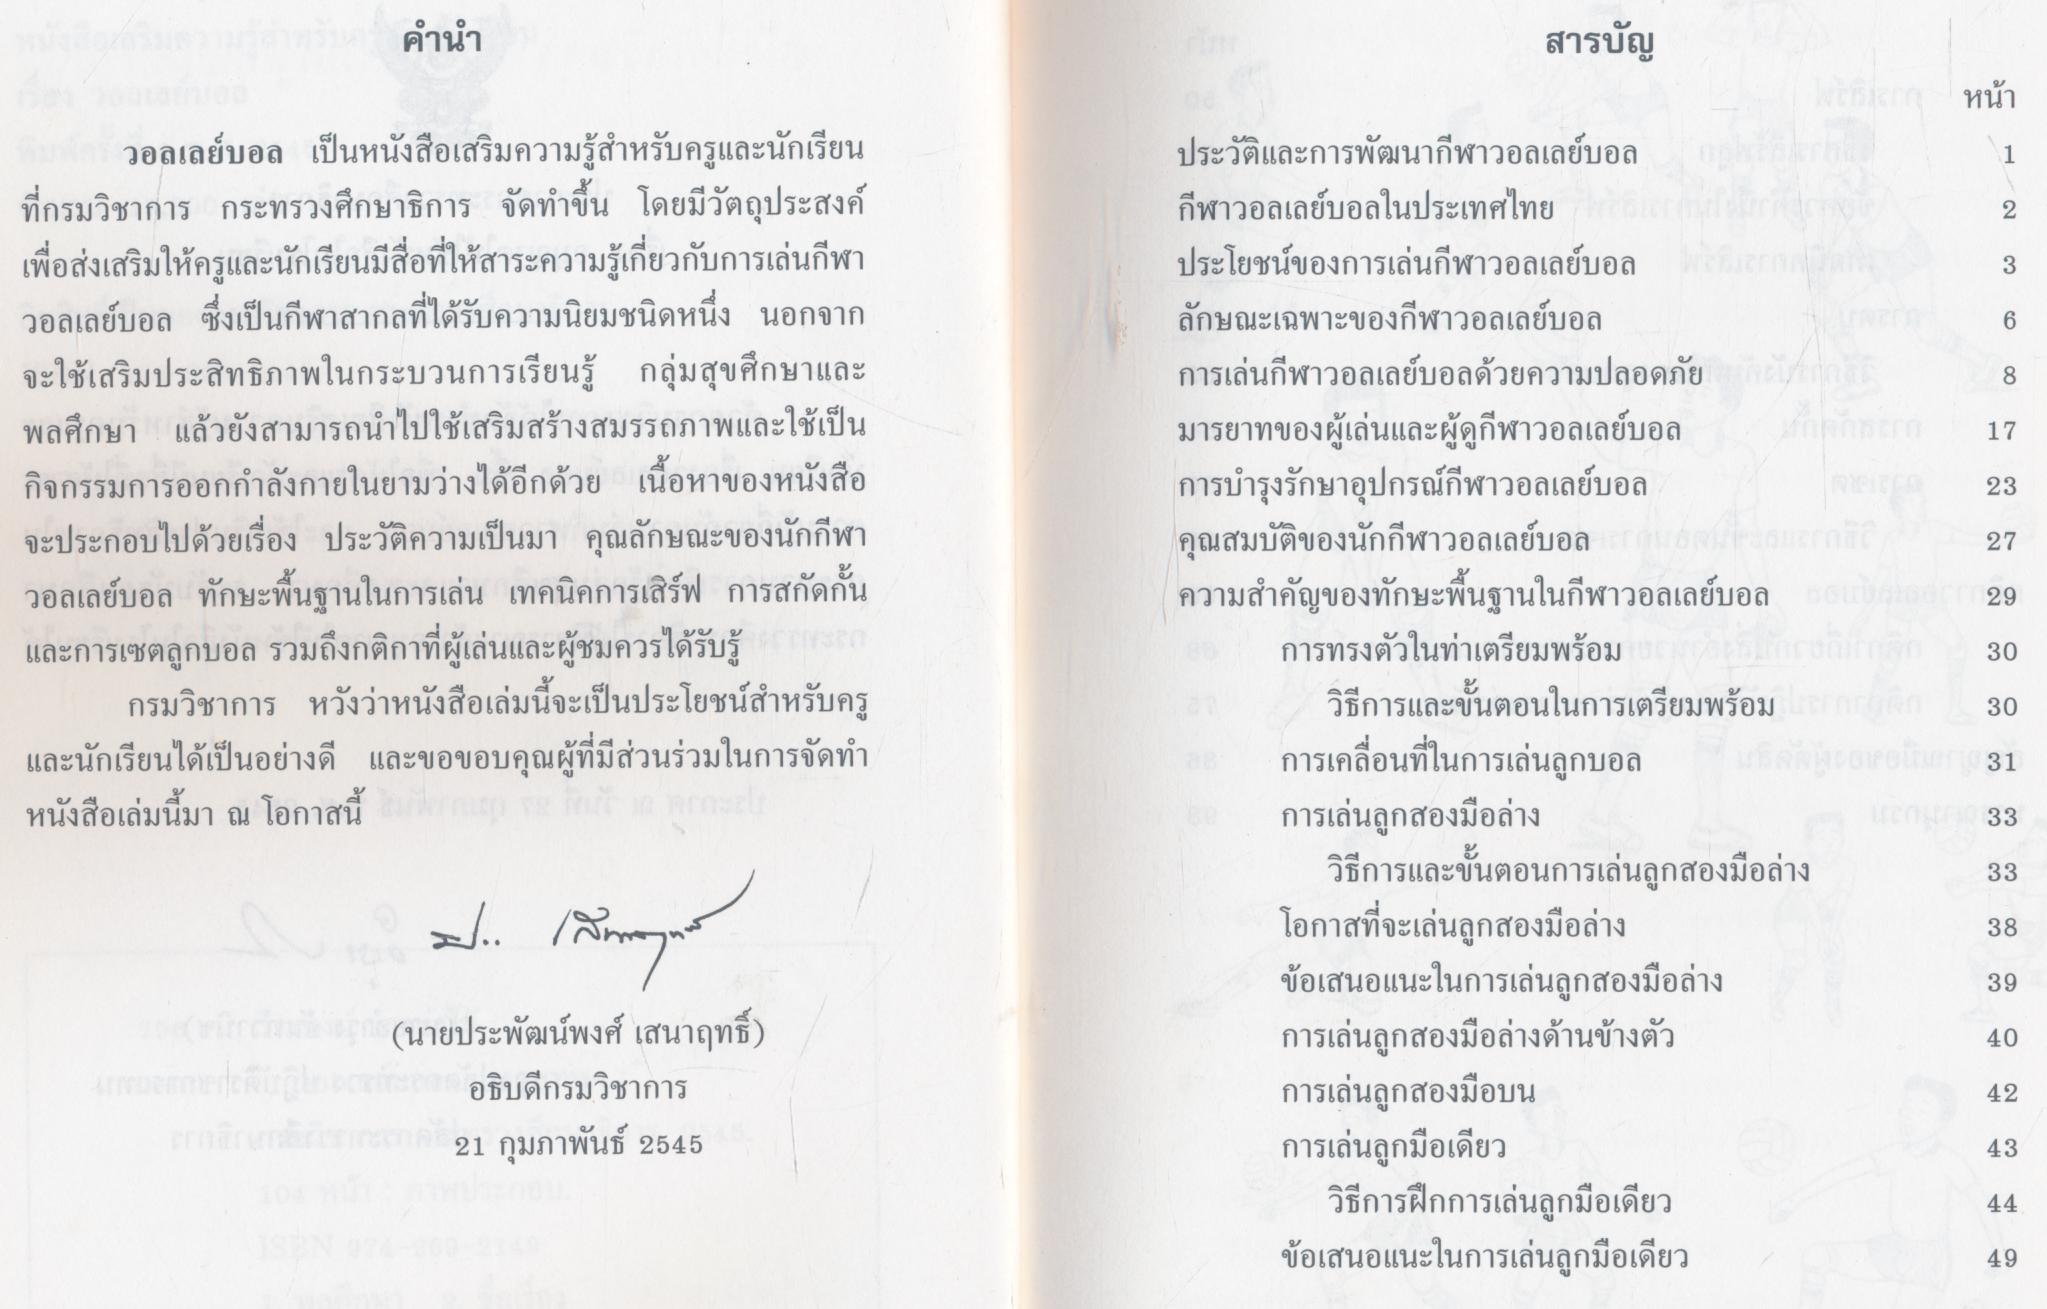 คำนำ
วอลเลย์บอล เป็นหนังสือเสริมความรู้สำหรับครูและนักเรียน
ที่กรมวิชาการ กระทรวงศึกษาธิการ จัดทำขึ้น โดยมีวัตถุประสงค์
เพื่อส่งเสริมให้ครูและนักเรียนมีสื่อที่ให้สาระความรู้เกี่ยวกับการเล่นกีฬา
วอลเลย์บอล ซึ่งเป็นกีฬาสากลที่ได้รับความนิยมชนิดหนึ่ง นอกจาก
จะใช้เสริมประสิทธิภาพในกระบวนการเรียนรู้ กลุ่มสุขศึกษาและ
พลศึกษา แล้วยังสามารถนำไปใช้เสริมสร้างสมรรถภาพและใช้เป็น
กิจกรรมการออกกำลังกายในยามว่างได้อีกด้วย เนื้อหาของหนังสือ
จะประกอบไปด้วยเรื่อง ประวัติความเป็นมา คุณลักษณะของนักกีฬา
วอลเลย์บอล ทักษะพื้นฐานในการเล่น เทคนิคการเสิร์ฟ การสกัดกั้น
และการเซตลูกบอล รวมถึงกติกาที่ผู้เล่นและผู้ชมควรได้รับรู้
กรมวิชาการ หวังว่าหนังสือเล่มนี้จะเป็นประโยชน์สำหรับครู
และนักเรียนได้เป็นอย่างดี และขอขอบคุณผู้ที่มีส่วนร่วมในการจัดทำ
หนังสือเล่มนี้มา ณ โอกาสนี้
(นายประพัฒน์พงศ์ เสนาฤทธิ์)
อธิบดีกรมวิชาการ
21 กุมภาพันธ์ 2545
สารบัญ
หน้า
ประวัติและการพัฒนากีฬาวอลเลย์บอล 1
กีฬาวอลเลย์บอลในประเทศไทย 2
ประโยชน์ของการเล่นกีฬาวอลเลย์บอล 3
ลักษณะเฉพาะของกีฬาวอลเลย์บอล 6
การเล่นกีฬาวอลเลย์บอลด้วยความปลอดภัย 8
มารยาทของผู้เล่นและผู้ดูกีฬาวอลเลย์บอล 17
การบำรุงรักษาอุปกรณ์กีฬาวอลเลย์บอล 23
คุณสมบัติของนักกีฬาวอลเลย์บอล 27
ความสำคัญของทักษะพื้นฐานในกีฬาวอลเลย์บอล 29
การทรงตัวในท่าเตรียมพร้อม 30
วิธีการและขั้นตอนในการเตรียมพร้อม 30
การเคลื่อนที่ในการเล่นลูกบอล 31
การเล่นลูกสองมือล่าง 33
วิธีการและขั้นตอนการเล่นลูกสองมือล่าง 33
โอกาสที่จะเล่นลูกสองมือล่าง 38
ข้อเสนอแนะในการเล่นลูกสองมือล่าง 39
การเล่นลูกสองมือล่างด้านข้างตัว 40
การเล่นลูกสองมือบน 42
การเล่นลูกมือเดียว 43
วิธีการฝึกการเล่นลูกมือเดียว 44
ข้อเสนอแนะในการเล่นลูกมือเดียว 49